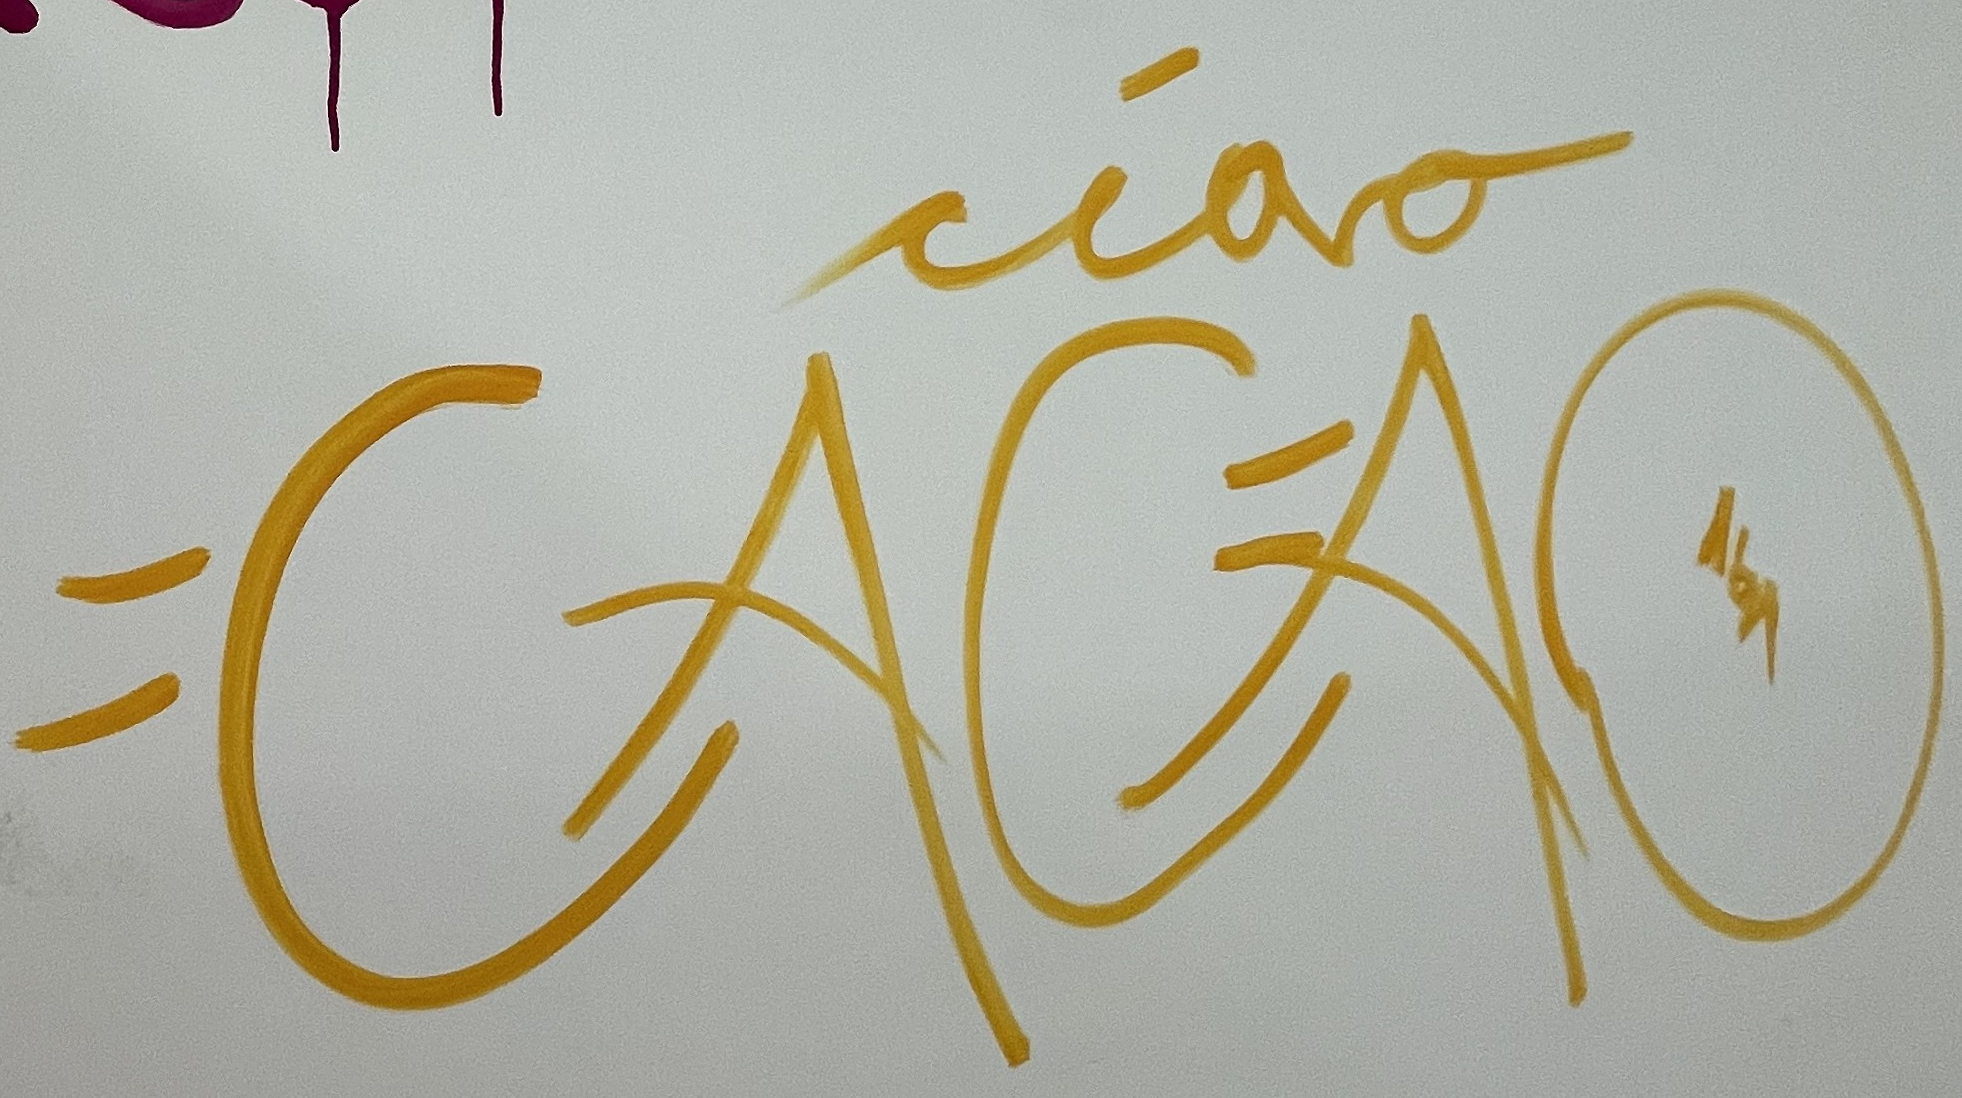 ciao
=CACAO